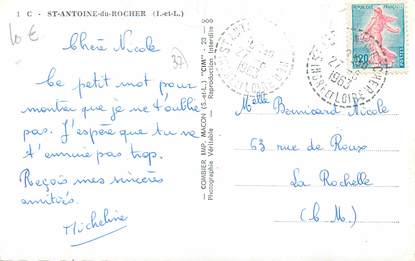 1 C - ST-ANTOINE-du-ROCHER (I.-et-L.)
10 €
37
Chère Nicole
Ce petit mot pour
montrer que je ne t'oublie
pas. J'espère que tu ne
t'ennuie pas trop.
Reçois mes sincères
amitiés.
Micheline
COMBIER IMP. MACON (S.-et-L.) "CIM"
Photographie Véritable - Reproduction Interdite
1963
INDRE ET LOIRE
0,20
Melle Bernicard Nicole
63 rue de Roux
La Rochelle
(C. M.)